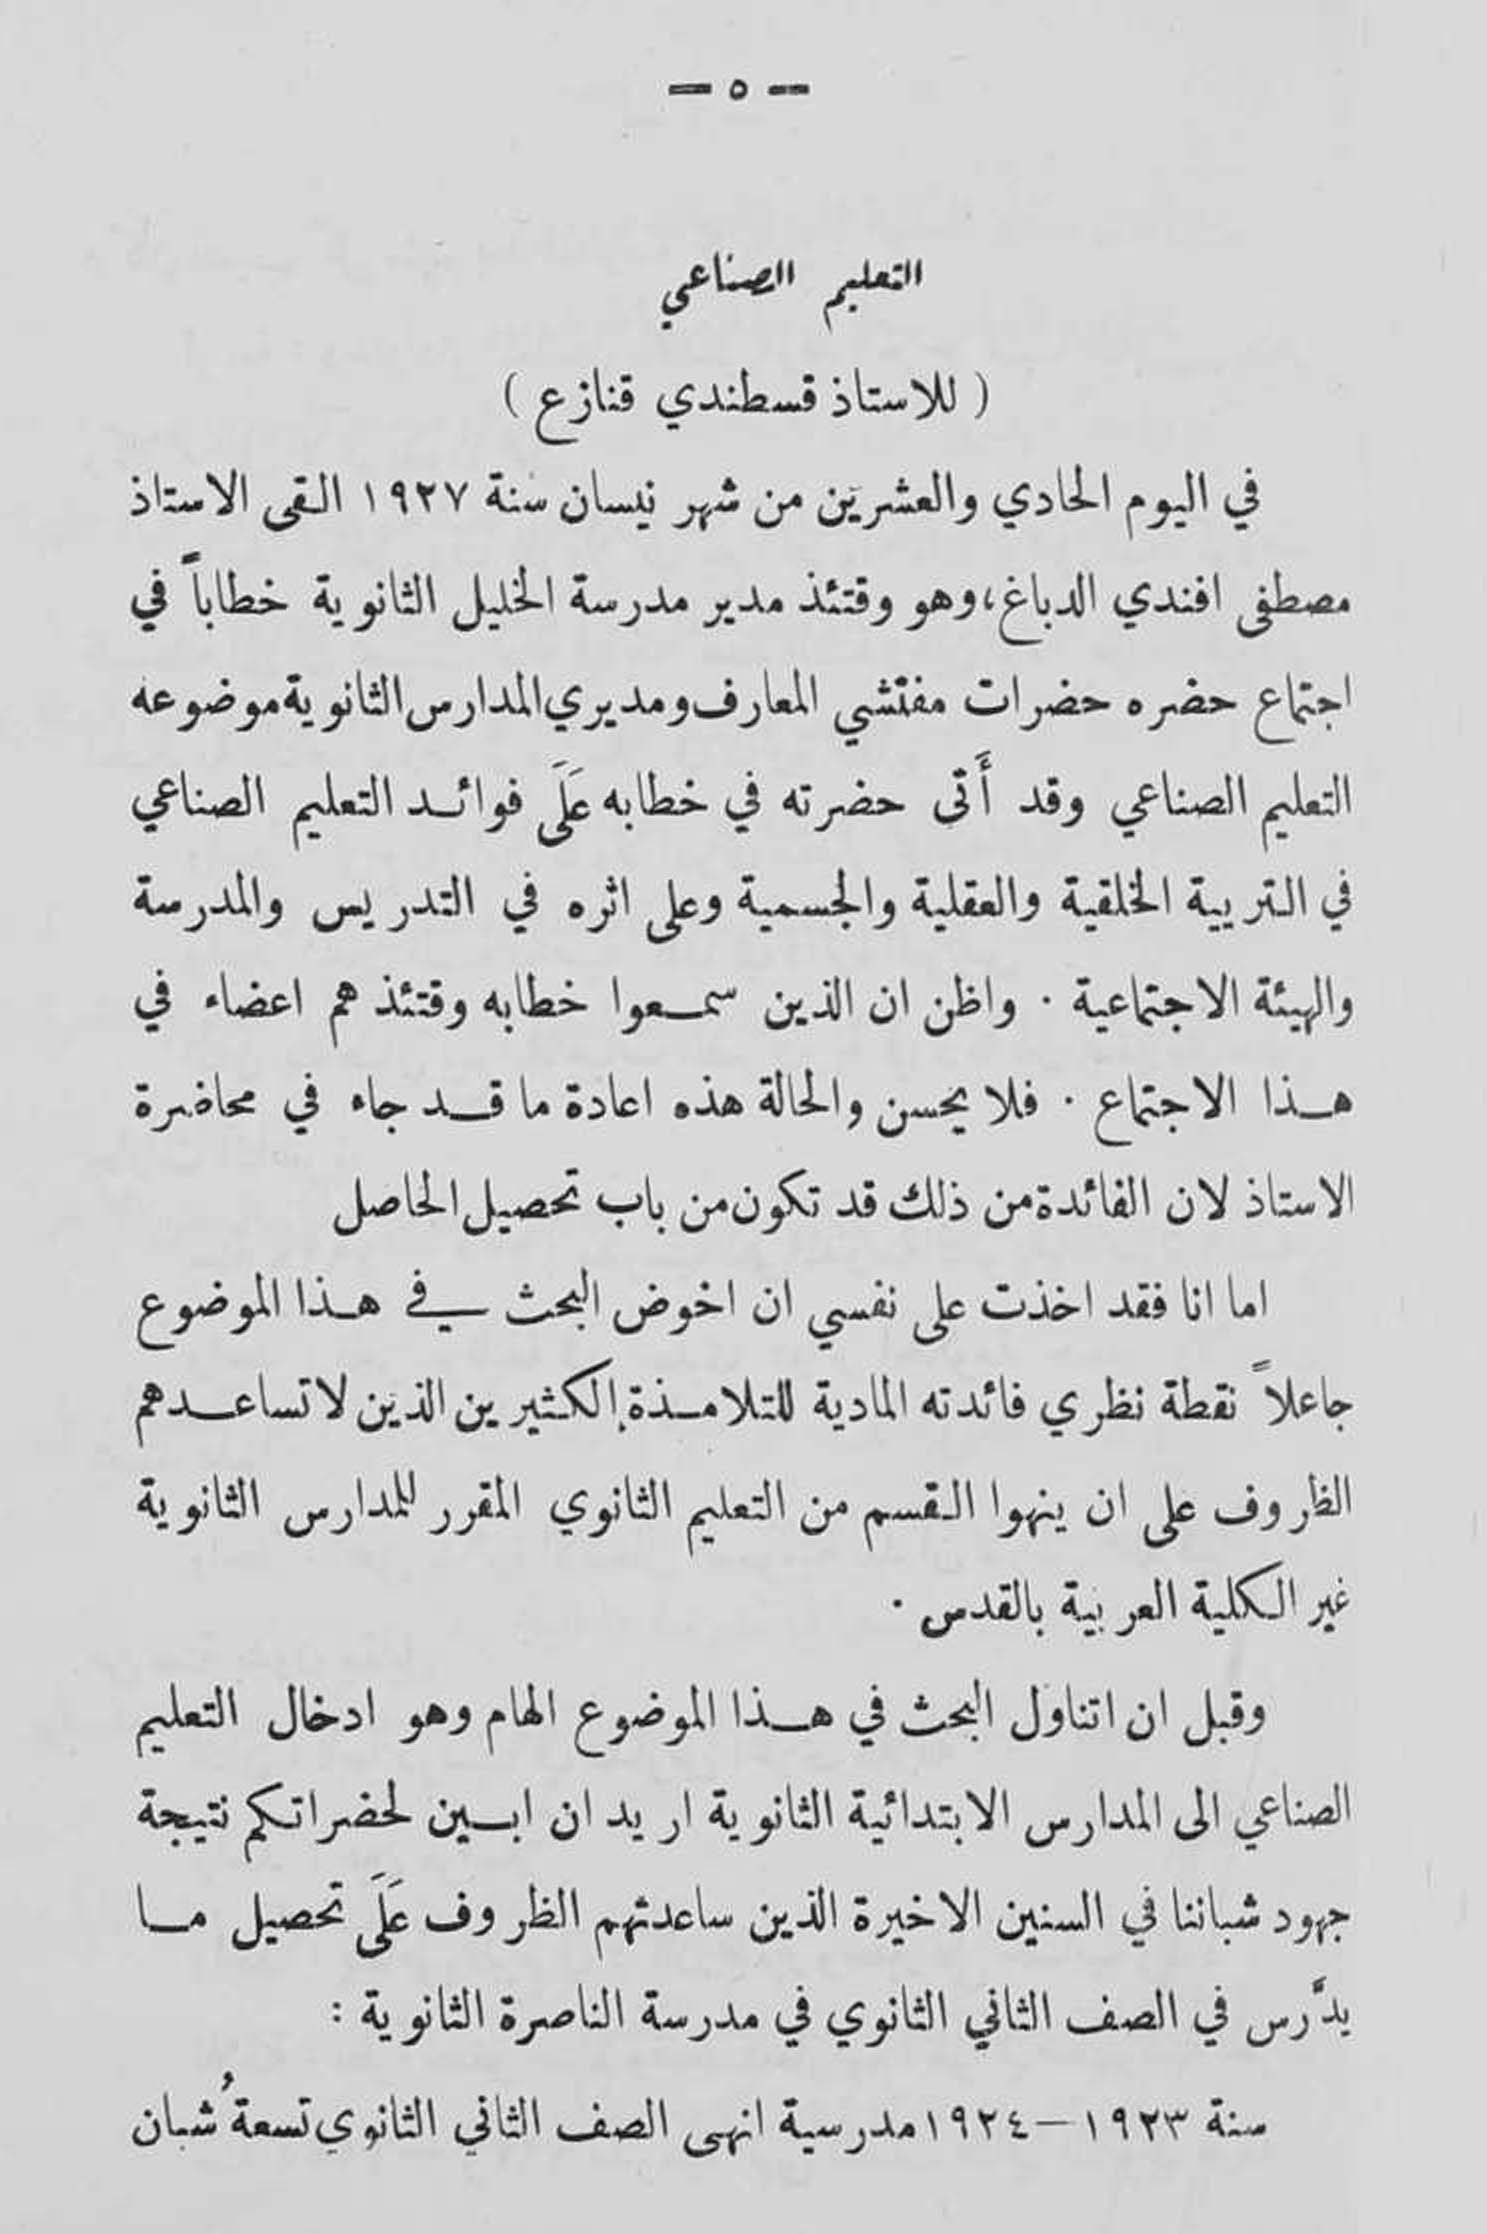 — ٥ —
التعليم الصناعي
( للاستاذ قسطندي قنازع )
في اليوم الحادي والعشرين من شهر نيسان سنة ١٩٢٧ القى الاستاذ
مصطفى افندي الدباغ، وهو وقتئذ مدير مدرسة الخليل الثانوية خطاباً في
اجتماع حضره حضرات مفتشي المعارف ومديري المدارس الثانوية موضوعه
التعليم الصناعي وقد أَتى حضرته في خطابه عَلَى فوائد التعليم الصناعي
في التربية الخلقية والعقلية والجسمية وعلى اثره في التدريس والمدرسة
والهيئة الاجتماعية . واظن ان الذين سمعوا خطابه وقتئذ هم اعضاء في
هذا الاجتماع . فلا يحسن والحالة هذه اعادة ما قد جاء في محاضرة
الاستاذ لان الفائدة من ذلك قد تكون من باب تحصيل الحاصل
اما انا فقد اخذت على نفسي ان اخوض البحث في هذا الموضوع
جاعلاً نقطة نظري فائدته المادية للتلامذة الكثيرين الذين لا تساعدهم
الظروف على ان ينهوا القسم من التعليم الثانوي المقرر للمدارس الثانوية
غير الكلية العربية بالقدس .
وقبل ان اتناول البحث في هذا الموضوع الهام وهو ادخال التعليم
الصناعي الى المدارس الابتدائية الثانوية اريد ان ابين لحضراتكم نتيجة
جهود شباننا في السنين الاخيرة الذين ساعدتهم الظروف عَلَى تحصيل ما
يدَّرس في الصف الثاني الثانوي في مدرسة الناصرة الثانوية :
سنة ١٩٢٣—١٩٢٤ مدرسية انهى الصف الثاني الثانوي تسعةُ شبان